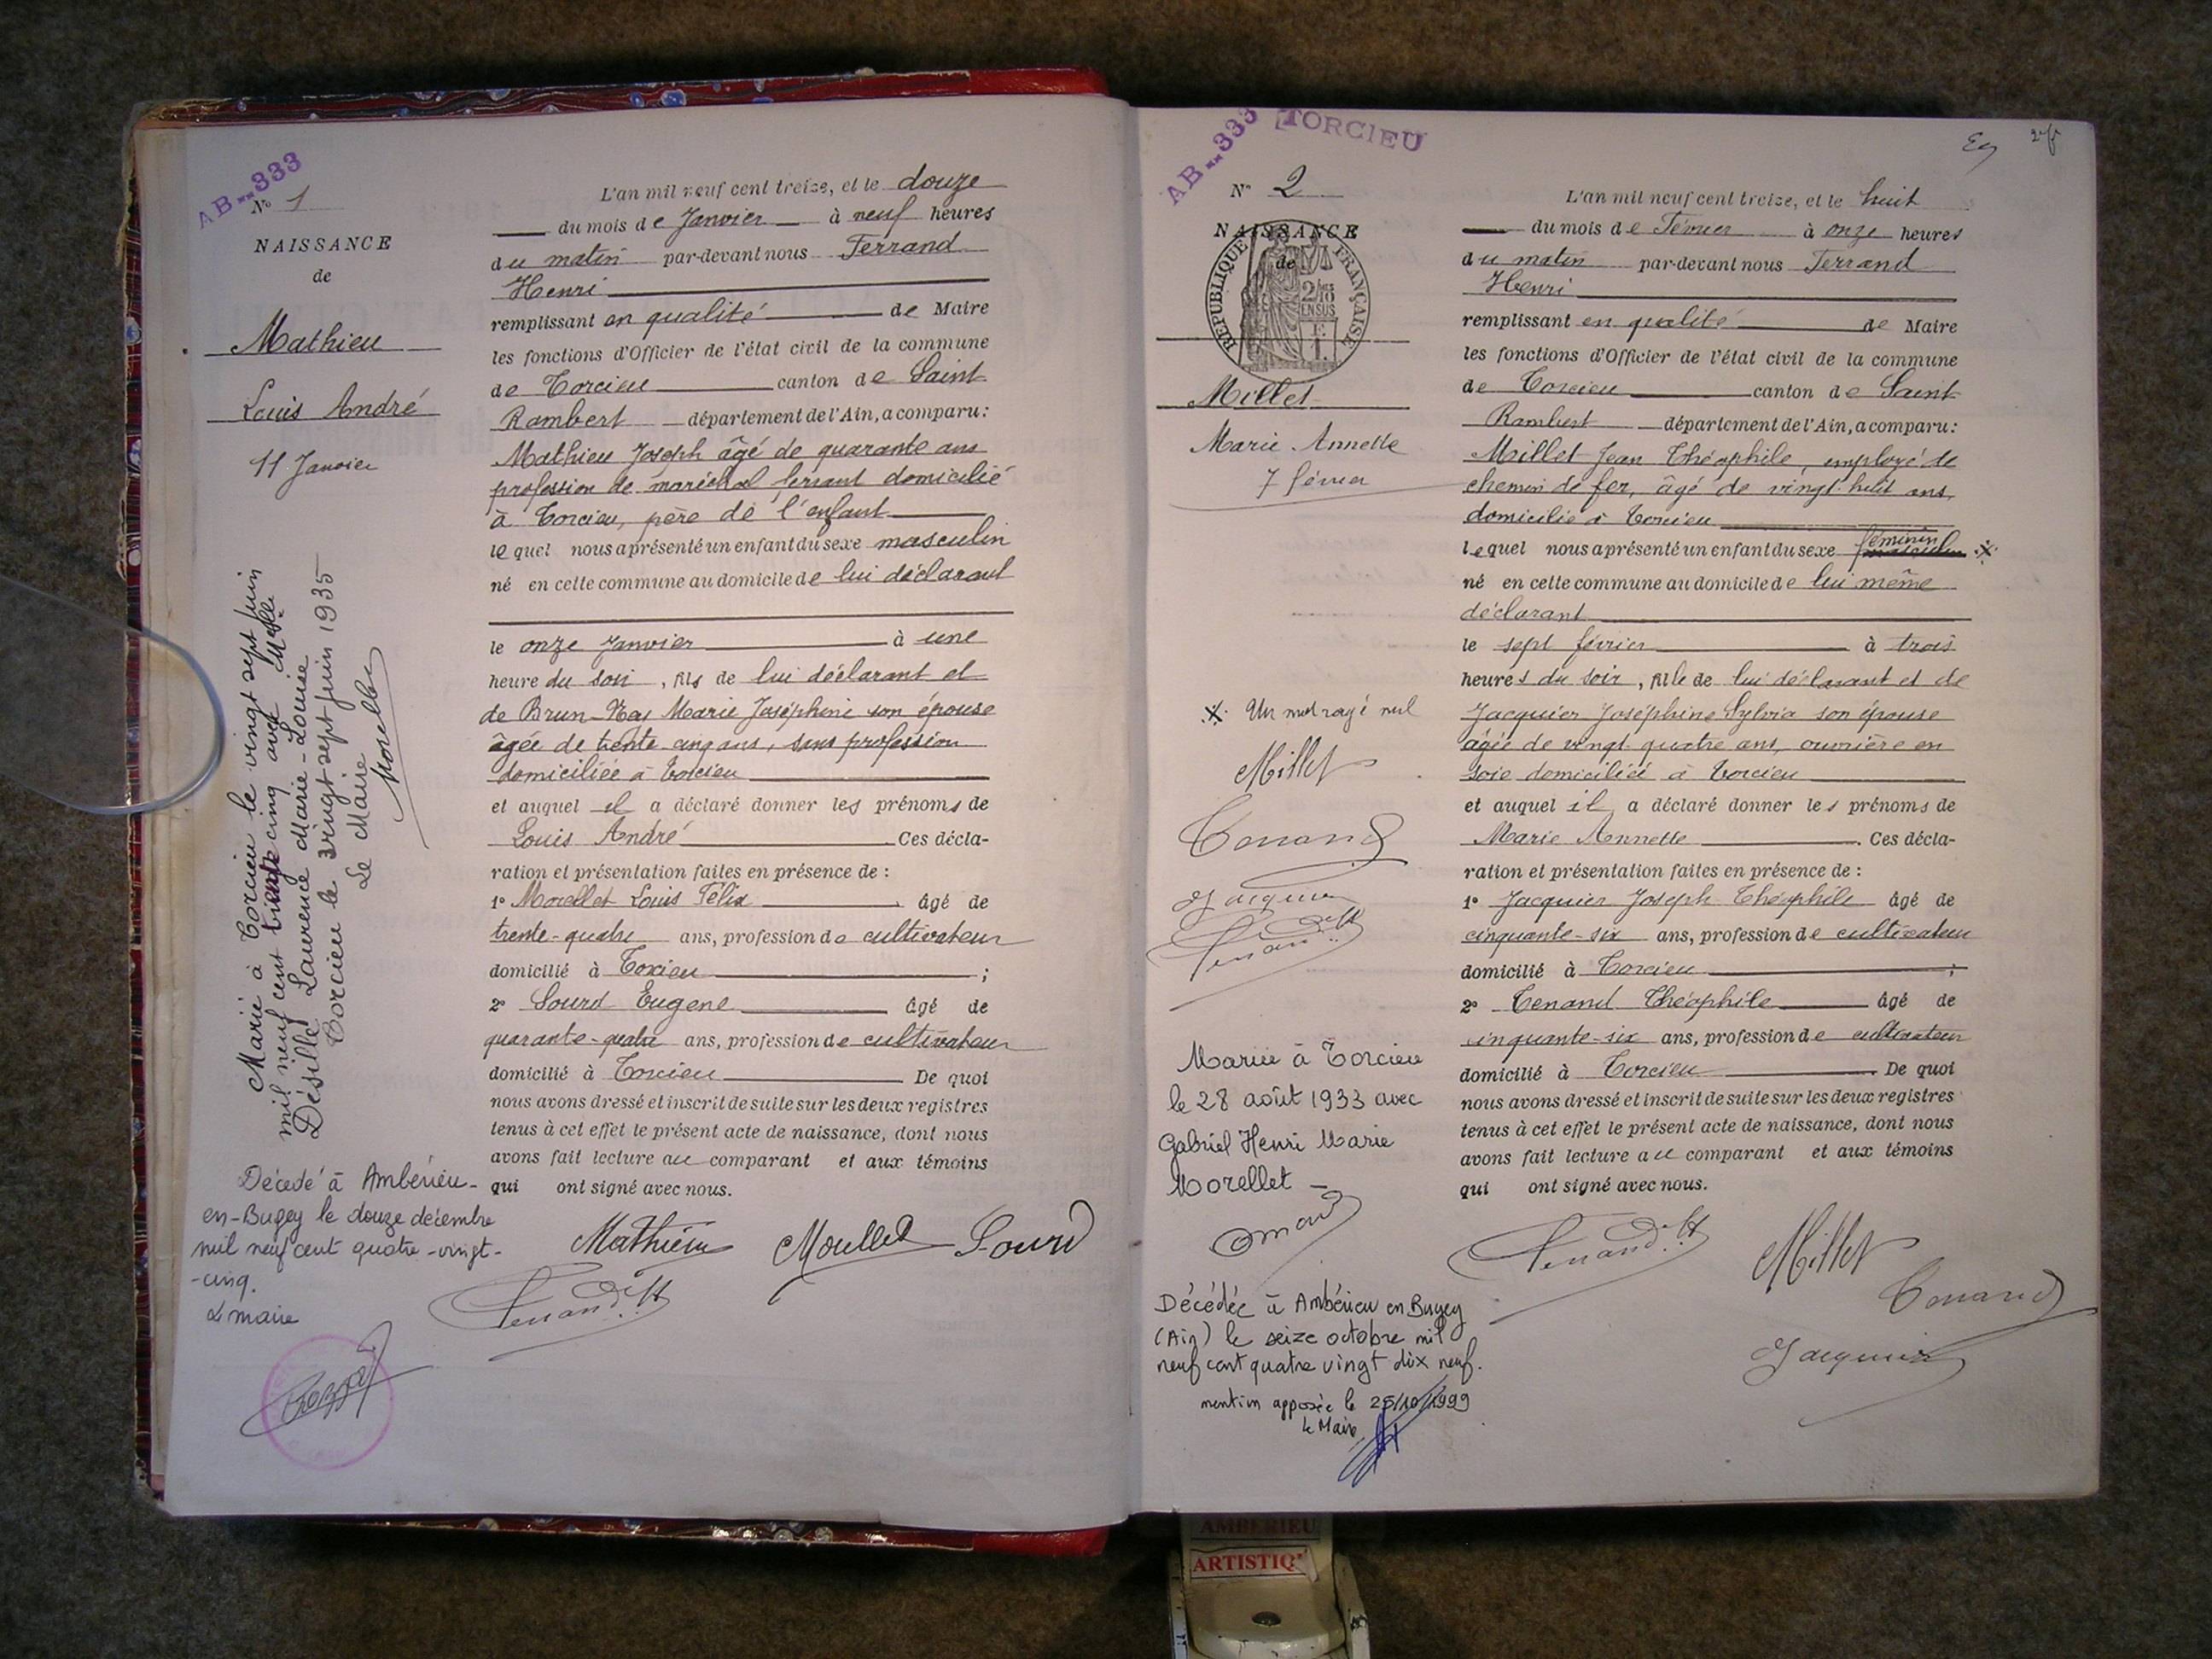 AB..333
Nº 1
NAISSANCE
de
Mathieu
Louis André
11 Janvier
Marié à Torcieu le vingt sept juin
mil neuf cent trente cinq avec Melle
Désille Laurence Marie-Louise
Torcieu le vingt sept juin 1935
Le Maire
Morellet
Décédé à Ambérieu-
en-Bugey le douze décembre
mil neuf cent quatre-vingt-
-cinq.
Le maire
L'an mil neuf cent treize, et le douze
du mois de Janvier à neuf heures
du matin par-devant nous Ferrand
Henri
remplissant en qualité de Maire
les fonctions d'Officier de l'état civil de la commune
de Torcieu canton de Saint
Rambert département de l'Ain, a comparu:
Mathieu Joseph âgé de quarante ans
profession de maréchal ferrant domicilié
à Torcieu, père de l'enfant
lequel nous a présenté un enfant du sexe masculin
né en cette commune au domicile de lui déclarant
le onze Janvier à une
heure du soir, fils de lui déclarant et
de Brun-Bas Marie Joséphine son épouse
âgée de trente cinq ans, sans profession
domiciliée à Torcieu
et auquel il a déclaré donner les prénoms de
Louis André Ces décla-
ration et présentation faites en présence de :
1º Morellet Louis Félix âgé de
trente-quatre ans, profession de cultivateur
domicilié à Torcieu ;
2º Sourd Eugene âgé de
quarante-quatre ans, profession de cultivateur
domicilié à Torcieu De quoi
nous avons dressé et inscrit de suite sur les deux registres
tenus à cet effet le présent acte de naissance, dont nous
avons fait lecture au comparant et aux témoins
qui ont signé avec nous.
Mathieu Morellet Sourd
Ferrand H
AB..333 TORCIEU
Nº 2
NAISSANCE
de
RÉPUBLIQUE FRANÇAISE
2/10 EN SUS
Millet
Marie Annette
7 février
Un mot rayé nul
Millet
Tenand
Jacquier
Ferrand H
Mariée à Torcieu
le 28 août 1933 avec
Gabriel Henri Marie
Morellet
Décédée à Ambérieu en Bugey
(Ain) le seize octobre mil
neuf cent quatre vingt dix neuf.
mention apposée le 25/10/1999
Le Maire
L'an mil neuf cent treize, et le huit
du mois de Février à onze heures
du matin par-devant nous Ferrand
Henri
remplissant en qualité de Maire
les fonctions d'Officier de l'état civil de la commune
de Torcieu canton de Saint
Rambert département de l'Ain, a comparu:
Millet Jean Théophile, employé de
chemin de fer, âgé de vingt-huit ans,
domicilié à Torcieu
lequel nous a présenté un enfant du sexe masculin féminin
né en cette commune au domicile de lui même
déclarant
le sept février à trois
heures du soir, fille de lui déclarant et de
Jacquier Joséphine Sylvia son épouse
âgée de vingt-quatre ans, ouvrière en
soie domiciliée à Torcieu
et auquel il a déclaré donner les prénoms de
Marie Annette. Ces décla-
ration et présentation faites en présence de :
1º Jacquier Joseph Théophile âgé de
cinquante-six ans, profession de cultivateur
domicilié à Torcieu ;
2º Tenand Théophile âgé de
cinquante-six ans, profession de cultivateur
domicilié à Torcieu. De quoi
nous avons dressé et inscrit de suite sur les deux registres
tenus à cet effet le présent acte de naissance, dont nous
avons fait lecture au comparant et aux témoins
qui ont signé avec nous.
Ferrand H Millet
Tenand
Jacquier
AMBERIEU
ARTISTIQ'